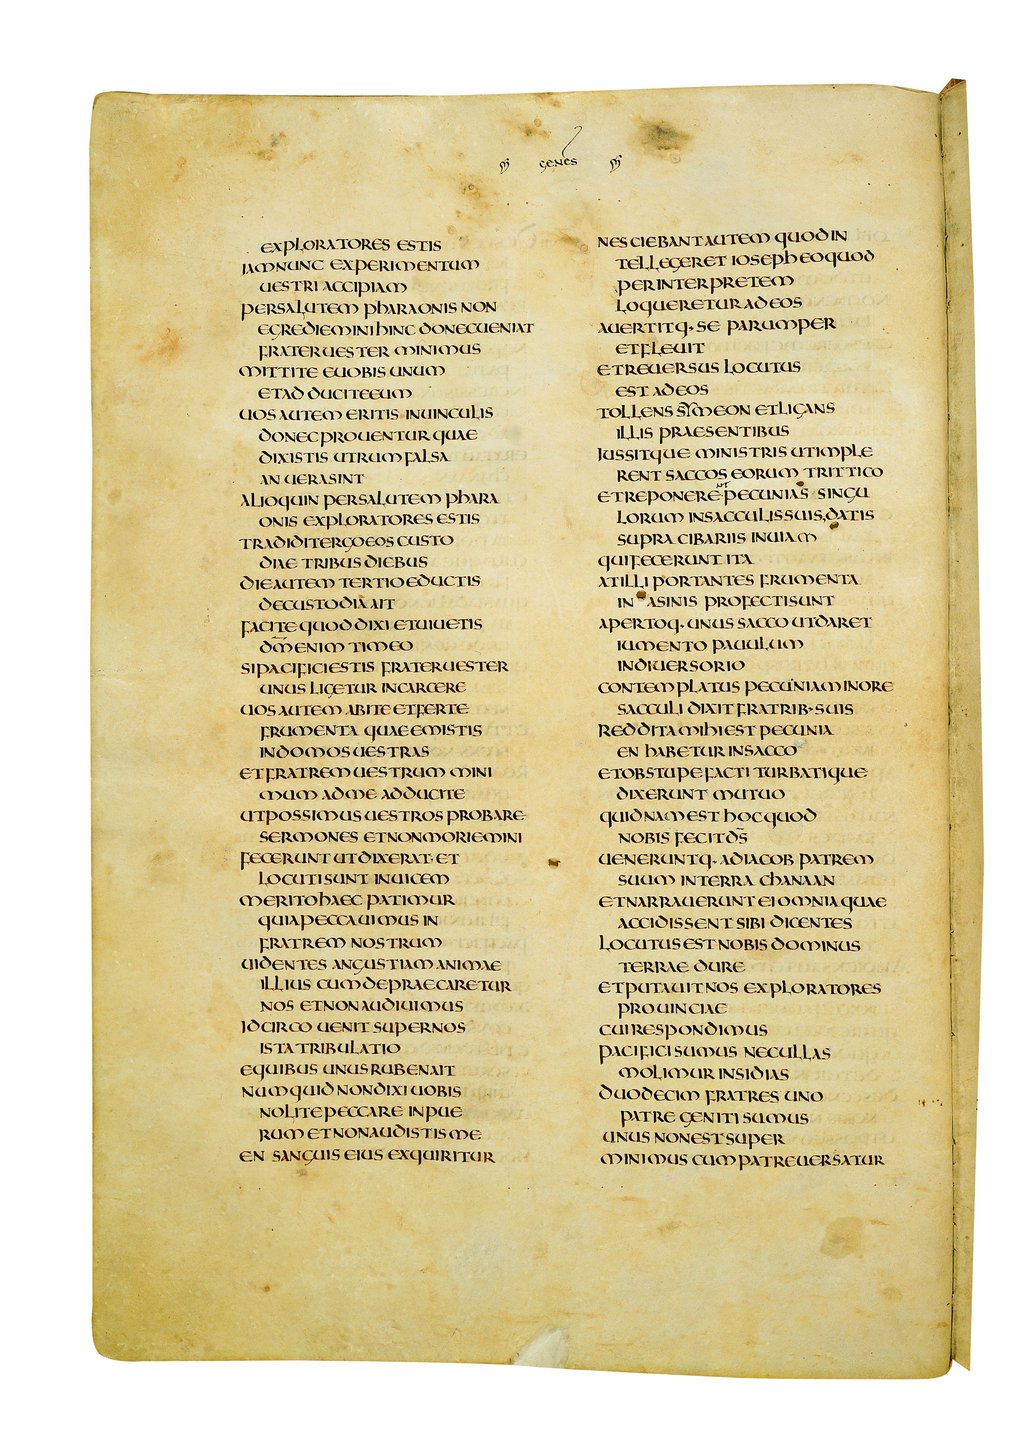 GENES
EXPLORATORES ESTIS
IAMNUNC EXPERIMENTUM
UESTRI ACCIPIAM
PERSALUTEM PHARAONIS NON
EGREDIEMINI HINC DONECUENIAT
FRATER UESTER MINIMUS
MITTITE EUOBIS UNUM
ETAD DUCITEEUM
UOS AUTEM ERITIS INUINCULIS
DONECPROUENTUR QUAE
DIXISTIS UTRUM FALSA
AN UERASINT
ALIOQUIN PERSALUTEM PHARA
ONIS EXPLORATORES ESTIS
TRADIDITERGOEOS CUSTO
DIAE TRIBUS DIEBUS
DIEAUTEM TERTIO EDUCTIS
DECUSTODIA AIT
FACITE QUOD DIXI ETUIUETIS
DM̄ ENIM TIMEO
SIPACIFICIESTIS FRATERUESTER
UNUS LIGETUR INCARCERE
UOS AUTEM ABITE ETFERTE
FRUMENTA QUAEEMISTIS
INDOMOS UESTRAS
ETFRATREM UESTRUM MINI
MUM ADME ADDUCITE
UTPOSSIMUS UESTROS PROBARE
SERMONES ETNONMORIEMINI
FECERUNT UTDIXERAT· ET
LOCUTI SUNT INUICEM
MERITO HAEC PATIMUR
QUIAPECCAUIMUS IN
FRATREM NOSTRUM
UIDENTES ANGUSTIAM ANIMAE
ILLIUS CUM DEPRAECARETUR
NOS ETNONAUDIUIMUS
IDCIRCO UENIT SUPERNOS
ISTATRIBULATIO
EQUIBUS UNUS RUBENAIT
NUMQUID NONDIXI UOBIS
NOLITEPECCARE INPUE
RUM ETNONAUDISTIS ME
EN SANGUIS EIUS EXQUIRITUR
NESCIEBANTAUTEM QUOD IN
TELLEGERET IOSEPH EOQUOD
PERINTERPRETEM
LOQUERETURADEOS
AUERTITQ· SE PARUMPER
ETFLEUIT
ETREUERSUS LOCUTUS
EST ADEOS
TOLLENS SYMEON ETLIGANS
ILLIS PRAESENTIBUS
IUSSITQUE MINISTRIS UTIMPLE
RENT SACCOS EORUM TRITTICO
ETREPONERE PECUNIAS SINGU
LORUM INSACCULIS SUIS, DATIS
SUPRA CIBARIIS INUIAM
QUIFECERUNT ITA
ATILLI PORTANTES FRUMENTA
IN ASINIS PROFECTISUNT
APERTOQ· UNUS SACCO UTDARET
IUMENTO PAUULUM
INDIUERSORIO
CONTEMPLATUS PECUNIAM INORE
SACCULI DIXIT FRATRIB· SUIS
REDDITA MIHI EST PECUNIA
EN HABETUR INSACCO
ETOBSTUPEFACTI TURBATIQUE
DIXERUNT MUTUO
QUIDNAM EST HOC QUOD
NOBIS FECIT DS̄
UENERUNTQ· ADIACOB PATREM
SUUM INTERRA CHANAAN
ETNARRAUERUNT EI OMNIA QUAE
ACCIDISSENT SIBI DICENTES
LOCUTUS EST NOBIS DOMINUS
TERRAE DURE
ETPUTAUIT NOS EXPLORATORES
PROUINCIAE
CUI RESPONDIMUS
PACIFICI SUMUS NECULLAS
MOLIMUR INSIDIAS
DUODECIM FRATRES UNO
PATRE GENITI SUMUS
UNUS NONESTSUPER
MINIMUS CUM PATREUERSATUR